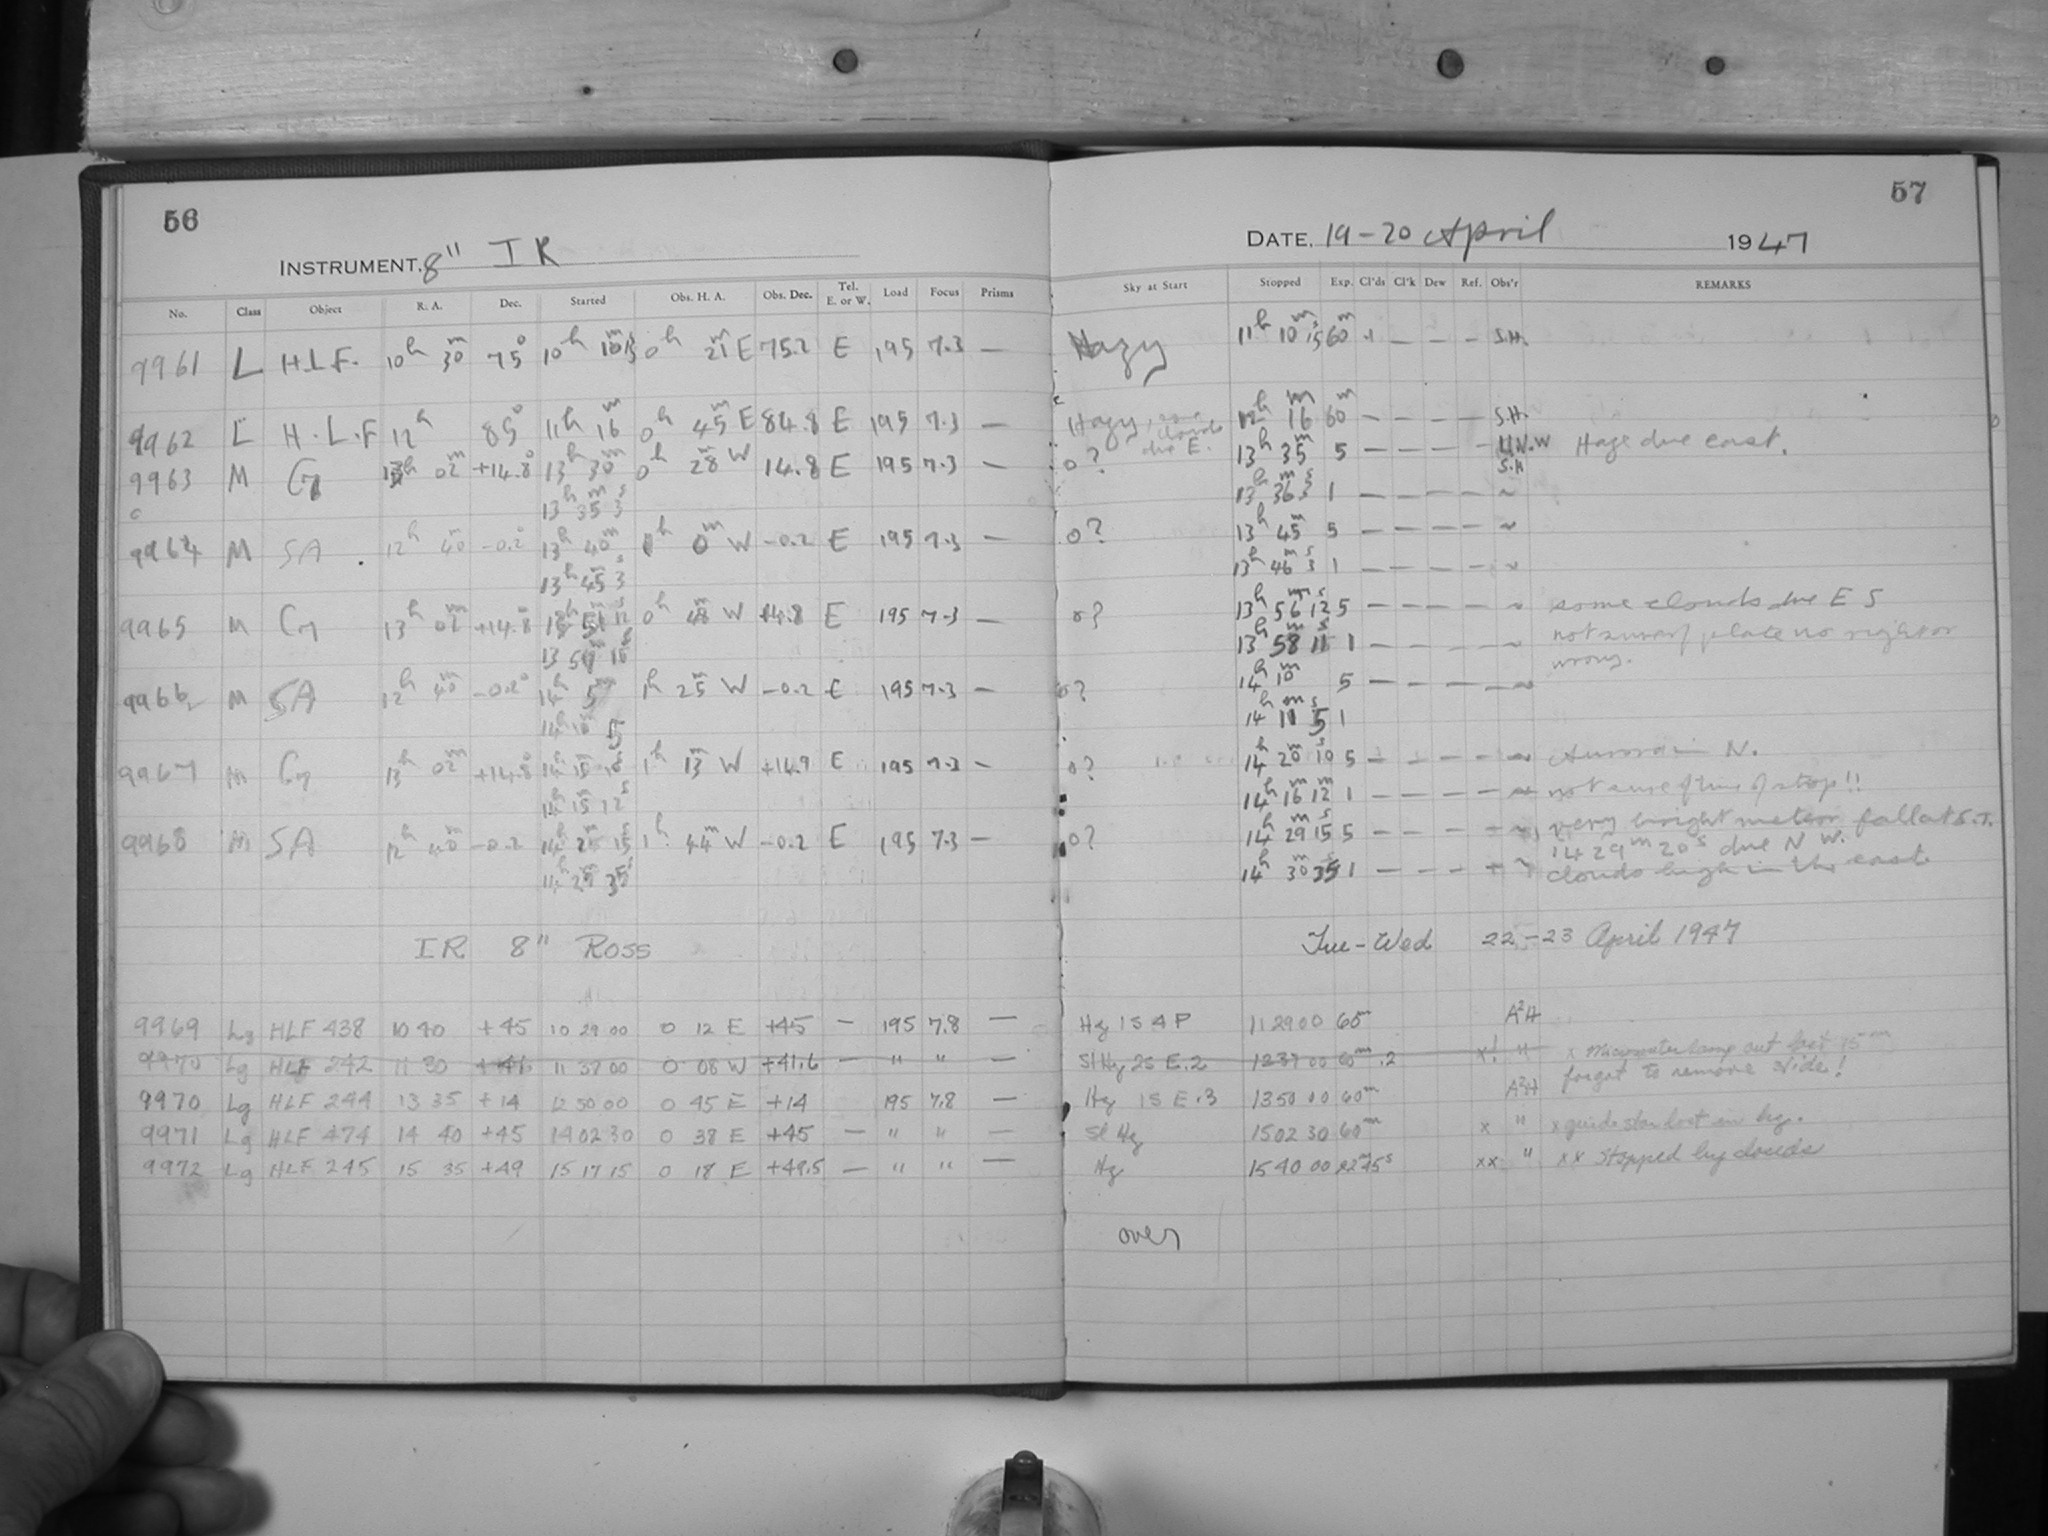 56
57
INSTRUMENT. 8" IR
DATE. 19-20 April 1947
No. Class Object R. A. Dec. Started Obs. H. A. Obs. Dec. Tel. E. or W. Load Focus Prisms Sky at Start Stopped Exp. Cl'ds Cl'k Dew Ref. Obs'r REMARKS
9961 L H.L.F. 10h 30m 75° 10h 0h 21m E 75.2 E 195 7.3 — Hazy 11h 10m 15s 60m — — — S.H.
9962 L H.L.F 12h 85° 11h 16m 0h 45m E 84.8 E 195 7.3 — Hazy, some clouds due E. 12h 16m 60m — — — — S.H.
9963 M 13h 02m +14.8° 13h 30m 0h 28m W 14.8 E 195 7.3 — o? 13h 35m 5 — — — — S.H Haze due east.
13h 35m 3s 13h 36m 3s 1 — — — — ~
9964 M SA 12h 40m -0.2° 13h 40m 0m W -0.2 E 195 7.3 — o? 13h 45m 5 — — — — ~
13h 45m 3s 13h 46m 3s 1 — — — — ~
9965 M 13h 02m +14.8° 13h 51m 0h 48m W +14.8 E 195 7.3 — o? 13h 56m 12s 5 — — — — ~ some clouds due E S
13h 58m 11s 1 — — — — ~ not sure if plate no right or
wrong.
9966 M SA 12h 40m -0.2° 14h 5m 1h 25m W -0.2 E 195 7.3 — o? 14h 10m 5 — — — — ~
14h 10m 5s 14h 11m 5s 1
9967 M 13h 02m +14.8° 14h 15m 10s 1h 13m W +14.9 E 195 7.3 — o? 14h 20m 10s 5 — — — — ~ Aurora in N.
14h 15m 12s 14h 16m 12m 1 — — — — ~ not sure of time of stop!!
9968 M SA 12h 40m -0.2 14h 15s 1h 44m W -0.2 E 195 7.3 — o? 14h 29m 15s 5 — — — — ~ very bright meteor fall at S.T.
14 29m 20s due N W.
14h 29m 35s 14h 30m 35s 1 — — — clouds high in the east
IR 8" Ross Tue-Wed 22-23 April 1947
9969 Lg HLF 438 10 40 +45 10 29 00 0 12 E +45 — 195 7.8 — Hz 1S 4P 11 29 00 60m A²H
9970 Lg HLF 242 11 30 +41 11 37 00 0 08 W +41.6 — " " Sl Hz 2S E.2 12 37 00 60m .2 x! " x Micrometer lamp out last 15m
forgot to remove slide!
9970 Lg HLF 244 13 35 +14 12 50 00 0 45 E +14 195 7.8 — Hz 1S E.3 13 50 00 60m A²H
9971 Lg HLF 474 14 40 +45 14 02 30 0 38 E +45 — " " — Sl Hz 15 02 30 60m x " x guide star lost in hz.
9972 Lg HLF 245 15 35 +49 15 17 15 0 18 E +49.5 — " " — Hz 15 40 00 22m 45s xx " xx Stopped by clouds
over